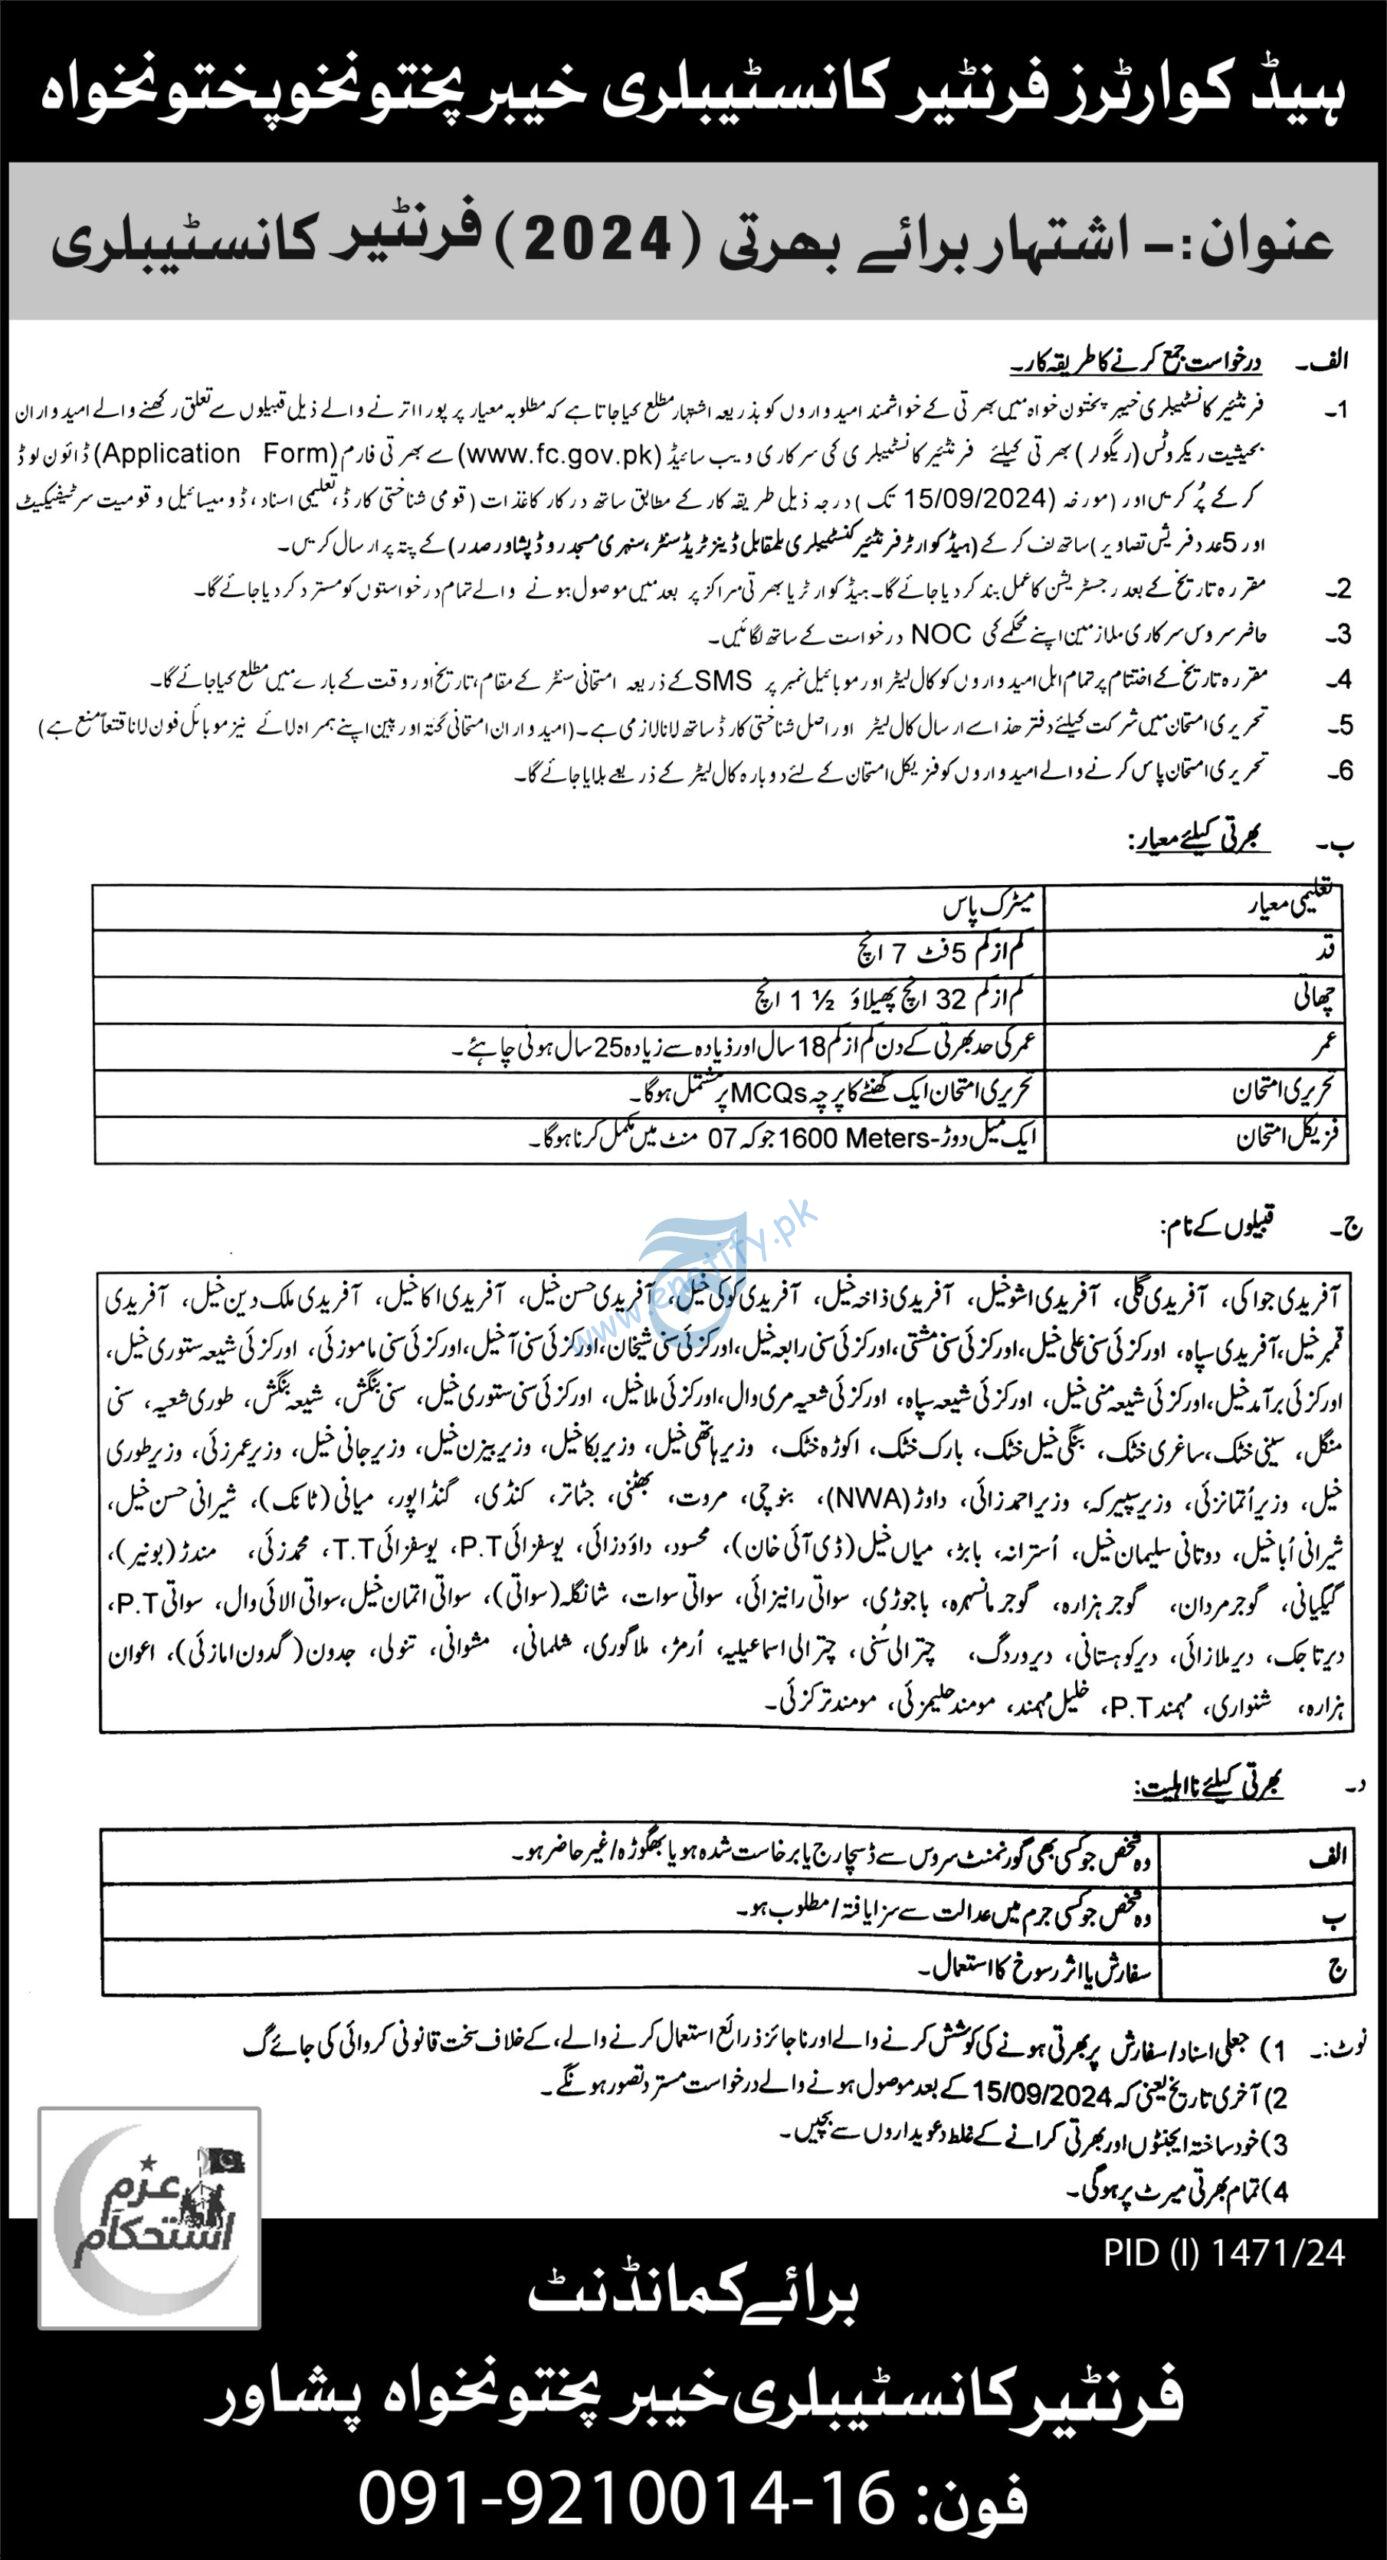 ہیڈ کوارٹرز فرنٹیر کانسٹیبلری خیبر پختونخوپختونخواہ
عنوان:- اشتہار برائے بھرتی (2024) فرنٹیر کانسٹیبلری
الف۔ درخواست جمع کرنے کا طریقہ کار۔
1۔ فرنٹیر کانسٹیبلری خیبر پختون خواہ میں بھرتی کے خواشمند امیدواروں کو بذریعہ اشتہار مطلع کیا جاتا ہے کہ مطلوبہ معیار پر پورا اترنے والے ذیل قبیلوں سے تعلق رکھنے والے امیدواران
بحیثیت ریکروٹس (ریگولر) بھرتی کیلئے فرنٹیر کانسٹیبلری کی سرکاری ویب سائیڈ (www.fc.gov.pk) سے بھرتی فارم (Application Form) ڈائون لوڈ
کر کے پُر کریں اور (مورخہ 15/09/2024 تک) درجہ ذیل طریقہ کار کے مطابق ساتھ درکار کاغذات (قومی شناختی کارڈ، تعلیمی اسناد، ڈومیسائیل و قومیت سرٹیفیکیٹ
اور 5 عدد فریش تصاویر) ساتھ لف کر کے (ہیڈ کوارٹر فرنٹیر کنسٹیبلری بلمقابل ڈینز ٹریڈ سنٹر، سنہری مسجد روڈ پشاور صدر) کے پتہ پر ارسال کریں۔
2۔ مقررہ تاریخ کے بعد رجسٹریشن کا عمل بند کر دیا جائے گا۔ ہیڈ کوارٹر یا بھرتی مراکز پر بعد میں موصول ہونے والے تمام درخواستوں کو مسترد کر دیا جائے گا۔
3۔ حاضر سروس سرکاری ملازمین اپنے محکمے کی NOC درخواست کے ساتھ لگائیں۔
4۔ مقررہ تاریخ کے اختتام پر تمام اہل امیدواروں کو کال لیٹر اور موبائیل نمبر پر SMS کے ذریعہ امتحانی سنٹر کے مقام، تاریخ اور وقت کے بارے میں مطلع کیا جائے گا۔
5۔ تحریری امتحان میں شرکت کیلئے دفتر ھذا سے ارسال کال لیٹر اور اصل شناختی کارڈ ساتھ لانا لازمی ہے۔ (امیدواران امتحانی گتہ اور پین اپنے ہمراہ لائے نیز موبائل فون لانا قتعاً منع ہے)
6۔ تحریری امتحان پاس کرنے والے امیدواروں کو فزیکل امتحان کے لئے دوبارہ کال لیٹر کے ذریعے بلایا جائے گا۔
ب۔ بھرتی کیلئے معیار:
تعلیمی معیار میٹرک پاس
قد کم از کم 5 فٹ 7 انچ
چھاتی کم از کم 32 انچ پھیلاؤ ½ 1 انچ
عمر عمر کی حد بھرتی کے دن کم از کم 18 سال اور ذیادہ سے زیادہ 25 سال ہونی چاہئے۔
تحریری امتحان تحریری امتحان ایک گھنٹے کا پرچہ MCQs پر مشتمل ہوگا۔
فزیکل امتحان ایک میل دوڑ-1600 Meters جو کہ 07 منٹ میں مکمل کرنا ہوگا۔
ج۔ قبیلوں کے نام:
آفریدی جواکی، آفریدی گلی، آفریدی اشو خیل، آفریدی ذاخہ خیل، آفریدی کوکی خیل، آفریدی حسن خیل، آفریدی اکا خیل، آفریدی ملک دین خیل، آفریدی
قمبر خیل، آفریدی سپاہ، اورکزئی سنی علی خیل، اورکزئی سنی مشتی، اورکزئی سنی رابعہ خیل، اورکزئی سنی شیخان، اورکزئی سنی آخیل، اورکزئی سنی ماموزئی، اورکزئی شیعہ ستوری خیل،
اورکزئی برآمد خیل، اورکزئی شیعہ منی خیل، اورکزئی شیعہ سپاہ، اورکزئی شعیہ مری وال، اورکزئی ملا خیل، اورکزئی سنی ستوری خیل، سنی بنگش، شیعہ بنگش، طوری شعیہ، سنی
منگل، سینی خٹک، ساغری خٹک، بنگی خیل خٹک، بارک خٹک، اکوڑہ خٹک، وزیر ہاتھی خیل، وزیر بکا خیل، وزیر بیزن خیل، وزیر جانی خیل، وزیر عمرزئی، وزیر طوری
خیل، وزیر اُتمانزئی، وزیر سپیرکہ، وزیر احمد زائی، داوڑ (NWA)، بنوچی، مروت، بھٹنی، جٹاتر، کنڈی، گنڈاپور، میانی (ٹانک)، شیرانی حسن خیل،
شیرانی اُبا خیل، دوتانی سلیمان خیل، اُسترانہ، بابڑ، میاں خیل (ڈی آئی خان)، محسود، داؤدزائی، یوسفزائی P.T، یوسفزائی T.T، محمدزئی، مندڑ (بونیر)،
گیگیانی، گوجر مردان، گوجر ہزارہ، گوجر مانسہرہ، باجوڑی، سواتی رانیزائی، سواتی سوات، شانگلہ (سواتی)، سواتی اتمان خیل، سواتی الائی وال، سواتی P.T،
دیر تاجک، دیر ملازائی، دیر کوہستانی، دیر وردگ، چترالی سُنی، چترالی اسماعیلیہ، اُرمڑ، ملاگوری، شلمانی، مشوانی، تنولی، جدون (گدون امازئی)، اعوان
ہزارہ، شنواری، مہمند P.T، خلیل مہمند، مومند حلیمزئی، مومند ترکزئی۔
د۔ بھرتی کیلئے نااہلیت:
الف وہ شخص جو کسی بھی گورنمنٹ سروس سے ڈسچارج یا برخاست شدہ ہو یا بھگوڑہ/غیر حاضر ہو۔
ب وہ شخص جو کسی جرم میں عدالت سے سزا یافتہ/مطلوب ہو۔
ج سفارش یا اثر رسوخ کا استعمال۔
نوٹ:۔ 1) جعلی اسناد/سفارش پر بھرتی ہونے کی کوشش کرنے والے اور ناجائز ذرائع استعمال کرنے والے، کے خلاف سخت قانونی کروائی کی جائے گ
2) آخری تاریخ یعنی کہ 15/09/2024 کے بعد موصول ہونے والے درخواست مسترد تصور ہونگے۔
3) خود ساختہ ایجنٹوں اور بھرتی کرانے کے غلط دعویداروں سے بچیں۔
4) تمام بھرتی میرٹ پر ہوگی۔
عزم
استحکام
PID (I) 1471/24
برائے کمانڈنٹ
فرنٹیر کانسٹیبلری خیبر پختونخواہ پشاور
فون: 091-9210014-16